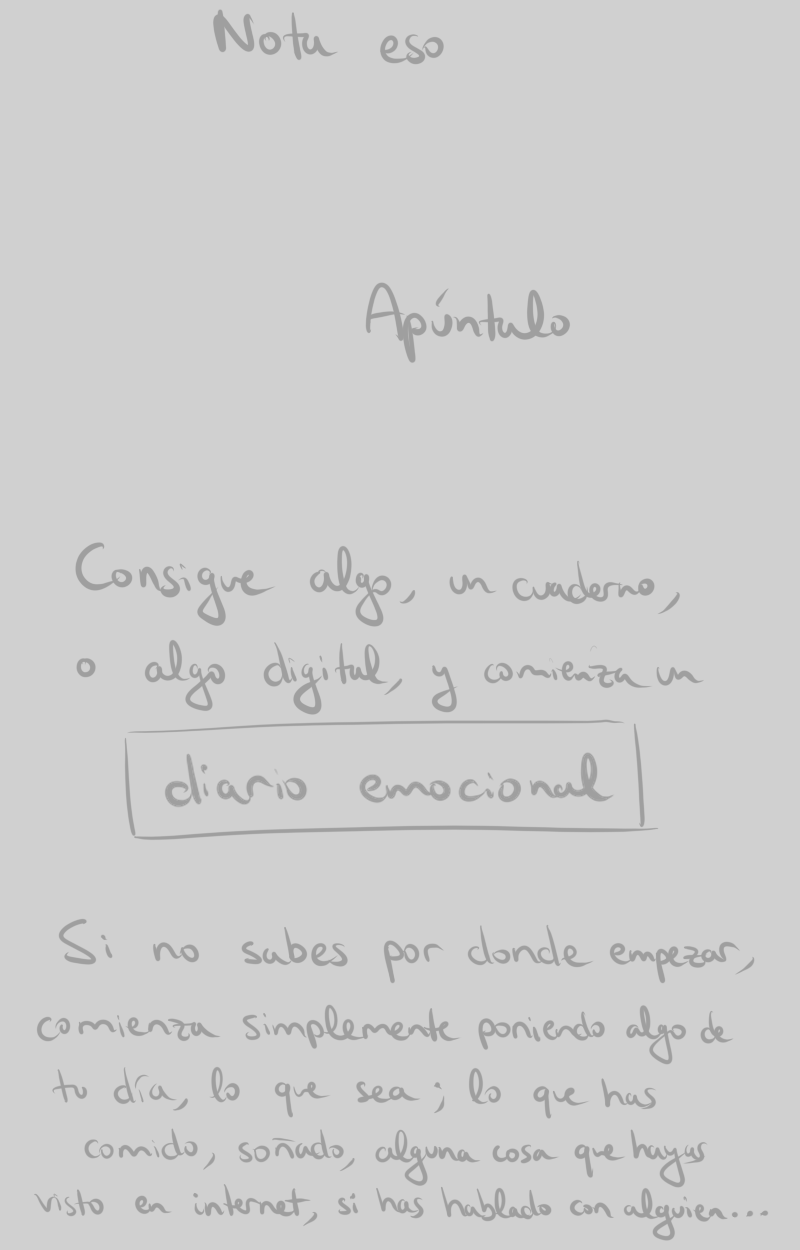 Nota eso
Apúntalo
Consigue algo, un cuaderno,
o algo digital, y comienza un
diario emocional
Si no sabes por donde empezar,
comienza simplemente poniendo algo de
tu día, lo que sea; lo que has
comido, soñado, alguna cosa que hayas
visto en internet, si has hablado con alguien...